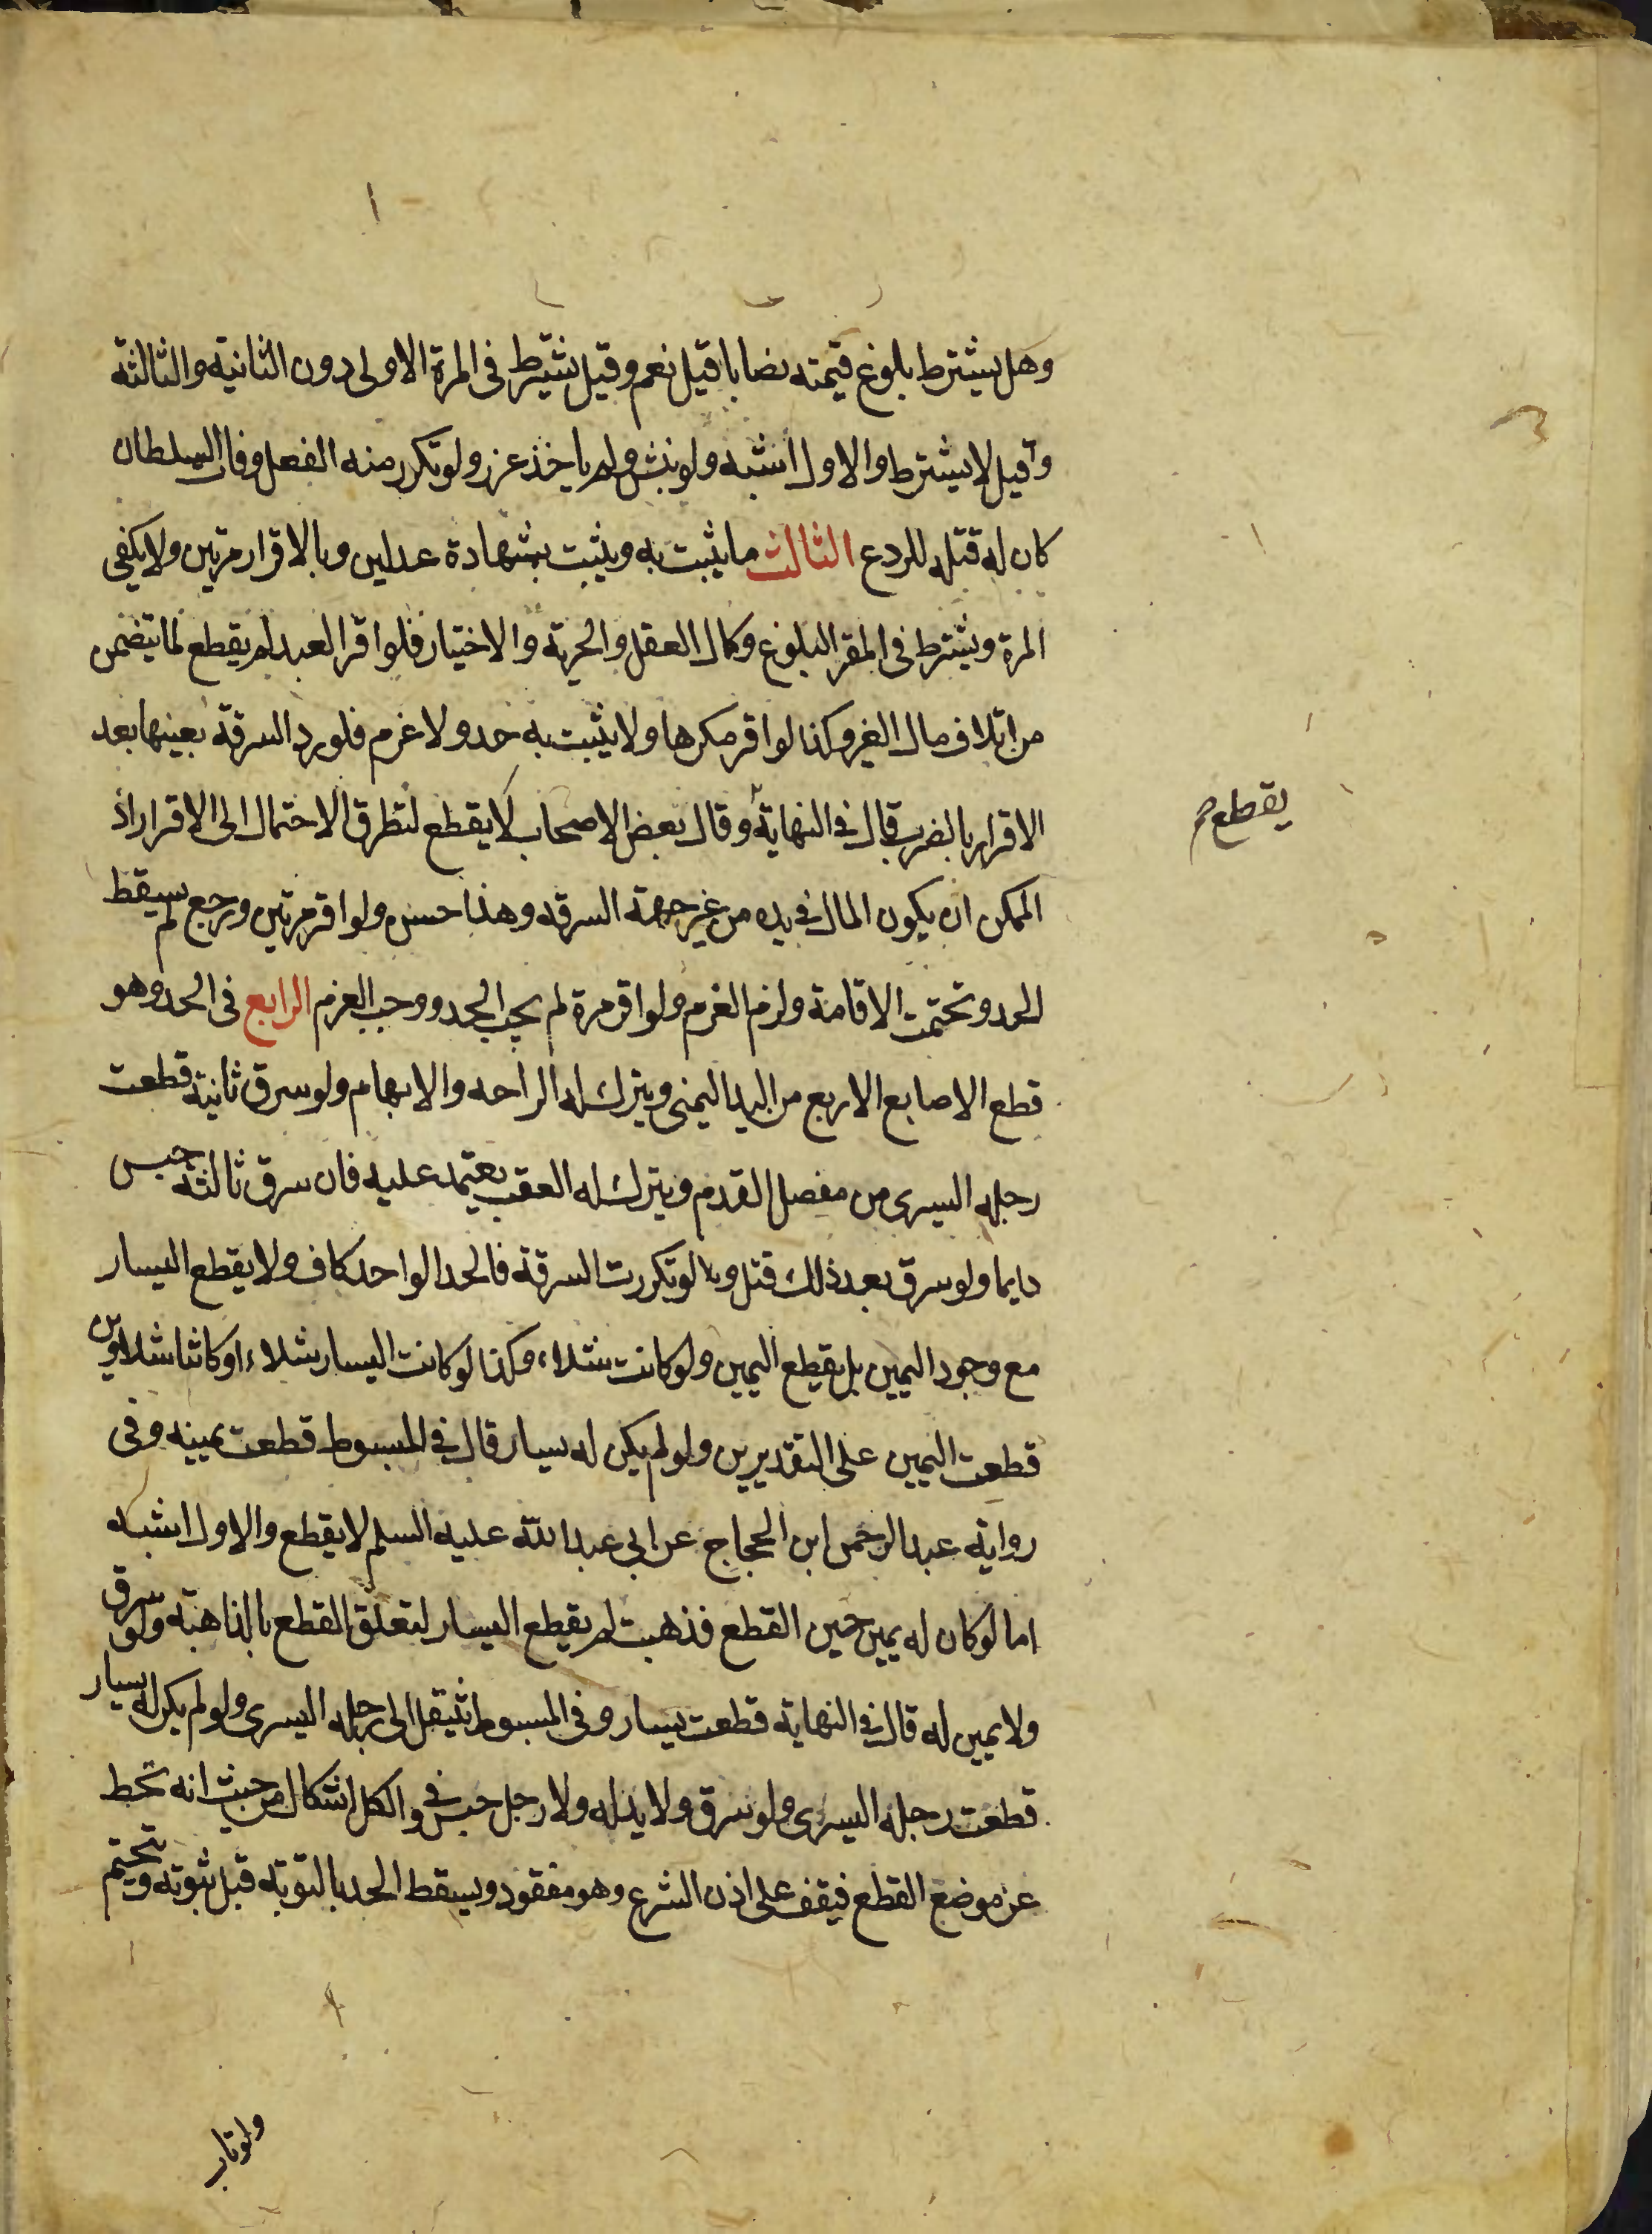 وهل يشترط بلوغ قيمته نصابا قيل نعم وقيل يشترط فى المرة الاولى دون الثانية والثالثة
وقيل لا يشترط والاول اشبه ولو نبش ولم ياخذ عزر ولو تكرر منه الفعل وفات السلطان
كان له قتله للردع الثالث ما يثبت به ويثبت بشهادة عدلين وبالاقرار مرتين ولا يكفي
المرة ويشترط فى المقر البلوغ وكمال العقل والحرية والاختيار فلو اقر العبد لم يقطع لما يتضمن
من اتلاف مال الغير وكذا لو اقر مكرها ولا يثبت به حد ولا غرم فلو رد السرقة بعينها بعد
الاقرار بالضرب قال في النهاية وقال بعض الاصحاب لا يقطع لتطرق الاحتمال الى الاقرار اذ
يقطع
الممكن ان يكون المال في يده من غير جهة السرقه وهذا حسن ولو اقر مرتين ورجع لم يسقط
الحد وتحتمت الاقامة ولزم الغرم ولو اقر مرة لم يجب الحد ووجب الغرم الرابع فى الحد وهو
قطع الاصابع الاربع من اليد اليمنى ويترك له الراحه والابهام ولو سرق ثانية قطعت
رجله اليسرى من مفصل القدم ويترك له العقب يعتمد عليه فان سرق ثالثة حبس
دايما ولو سرق بعد ذلك قتل ولو تكررت السرقة فالحد الواحد كاف ولا يقطع اليسار
مع وجود اليمين بل يقطع اليمين ولو كانت شلاء وكذا لو كانت اليسار شلاء او كانتا شلاوين
قطعت اليمين على التقديرين ولو لم يكن له يسار قال في المبسوط قطعت يمينه وفى
رواية عبد الرحمن ابن الحجاج عن ابي عبد الله عليه السلم لا يقطع والاول اشبه
اما لو كان له يمين حين القطع فذهبت لم يقطع اليسار لتعلق القطع بالذاهبة ولو سرق
ولا يمين له قال في النهاية قطعت يساره وفى المبسوط ينتقل الى رجله اليسرى ولو لم يكن له يسار
قطعت رجله اليسرى ولو سرق ولا يد له ولا رجل حبس وفي الكل اشكال من حيث انه تخط
عن موضع القطع فيقف على اذن الشرع وهو مفقود ويسقط الحد بالتوبة قبل ثبوته ويتحتم
ولو تاب